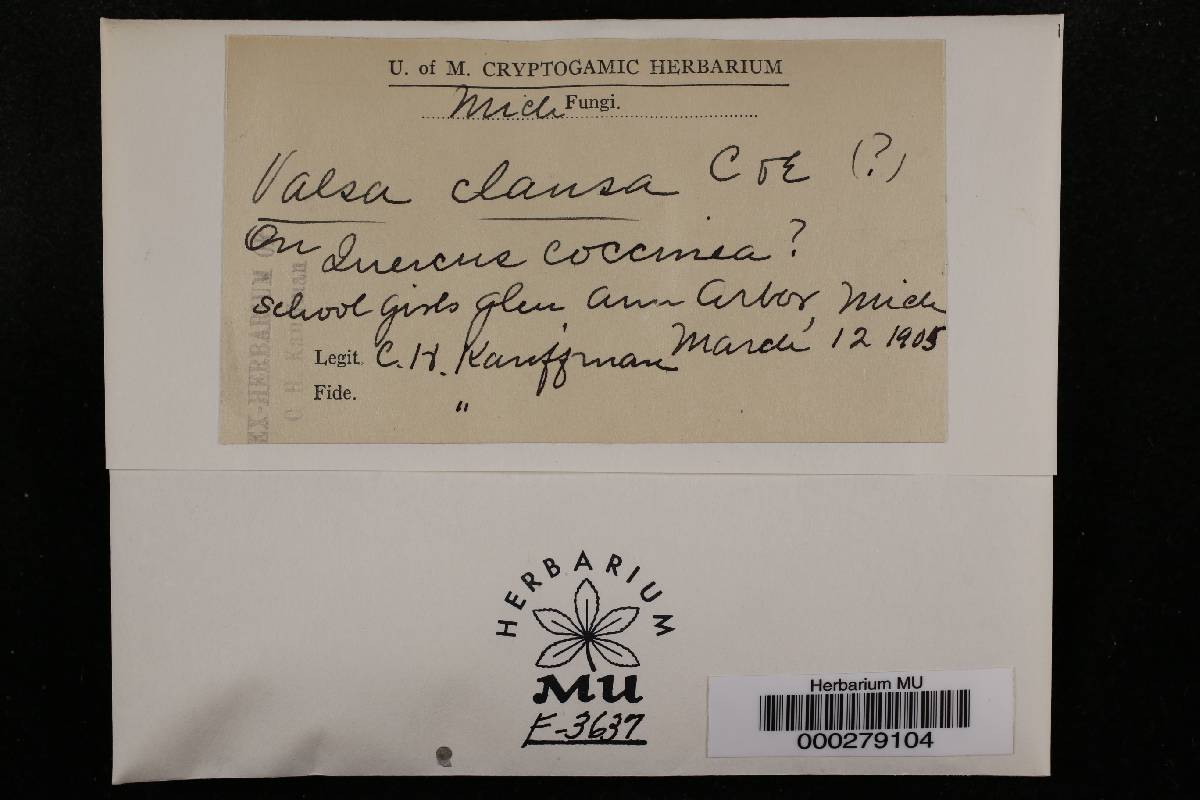 U. of M. CRYPTOGAMIC HERBARIUM
Mich Fungi.
Valsa clausa C & E (?)
On Quercus coccinea?
School girls glen, Ann Arbor, Mich
Legit. C. H. Kauffman March 12 1905
Fide. "
EX-HERBARIUM OF
C H Kauffman
HERBARIUM
MU
F-3637
Herbarium MU
000279104